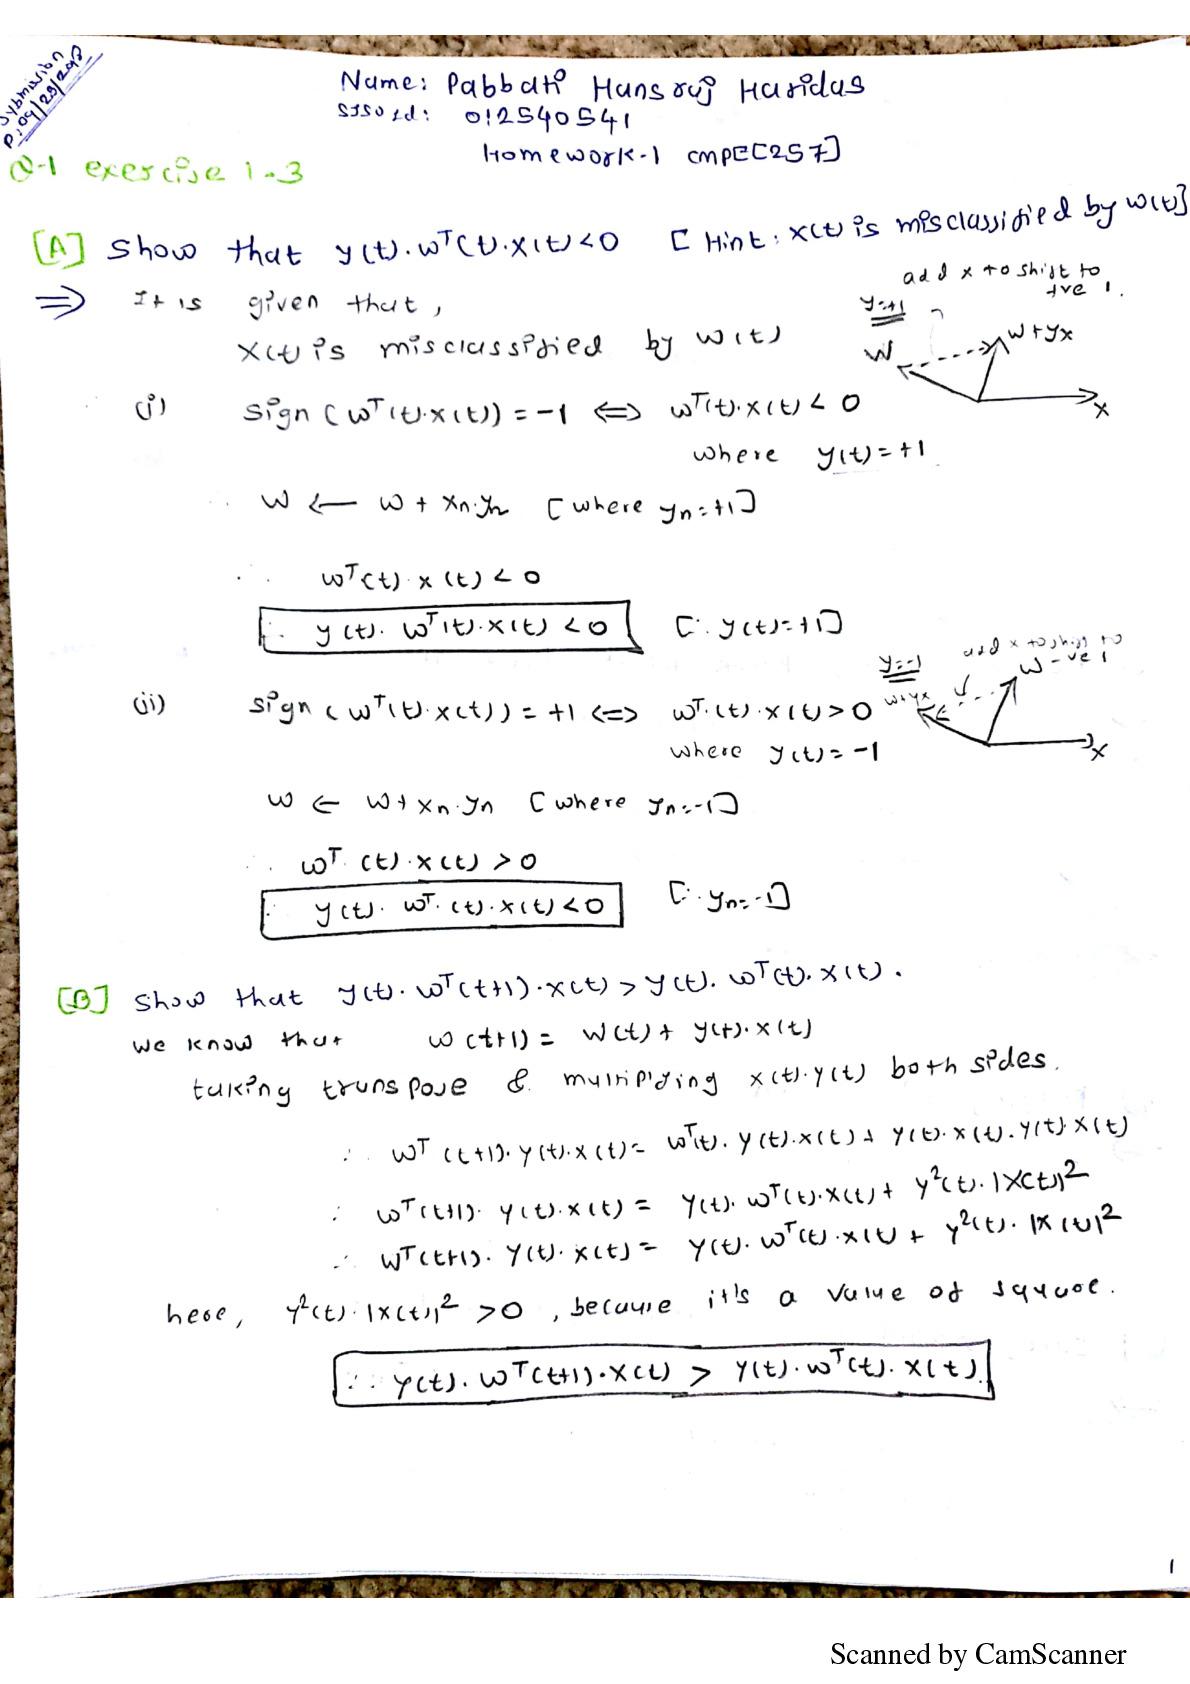 Submission
D: 09/29/2018
Name: Pabbati Hansraj Haridas
SJSU Id: 012540541
Homework-1 CMPE[257]
Q-1 exercise 1.3
[A] Show that y(t).wᵀ(t).x(t)<0 [Hint: x(t) is misclassified by w(t)]
⇒ It is given that,
x(t) is misclassified by w(t)
add x to shift to
+ve 1.
y=+1
w
w+yx
x
(i) sign(wᵀ(t).x(t)) = -1 ⟺ wᵀ(t).x(t) < 0
where y(t)=+1
w ← w + xn.yn [where yn=+1]
∴ wᵀ(t).x(t) < 0
∴ y(t). wᵀ(t).x(t) <0 [∵ y(t)=+1]
y=-1
add x to shift to
-ve 1
w
w+yx
x
(ii) sign(wᵀ(t).x(t)) = +1 ⟺ wᵀ.(t).x(t)>0
where y(t) = -1
w ← w+xn.yn [where yn=-1]
∴ wᵀ.(t).x(t) >0
∴ y(t). wᵀ.(t).x(t)<0 [∵ yn=-1]
[B] Show that y(t). wᵀ(t+1).x(t) > y(t). wᵀ(t). x(t).
we know that w(t+1) = w(t)+ y(t).x(t)
taking transpose & multiplying x(t).y(t) both sides.
∴ wᵀ(t+1).y(t).x(t) = wᵀ(t). y(t).x(t) + y(t).x(t).y(t).x(t)
∴ wᵀ(t+1). y(t).x(t) = y(t). wᵀ(t).x(t) + y²(t).|x(t)|²
∴ wᵀ(t+1). y(t). x(t) = y(t). wᵀ(t).x(t) + y²(t). |x(t)|²
here, y²(t).|x(t)|² >0, because it's a value of square.
∴ y(t). wᵀ(t+1).x(t) > y(t).wᵀ(t). x(t).
1
Scanned by CamScanner